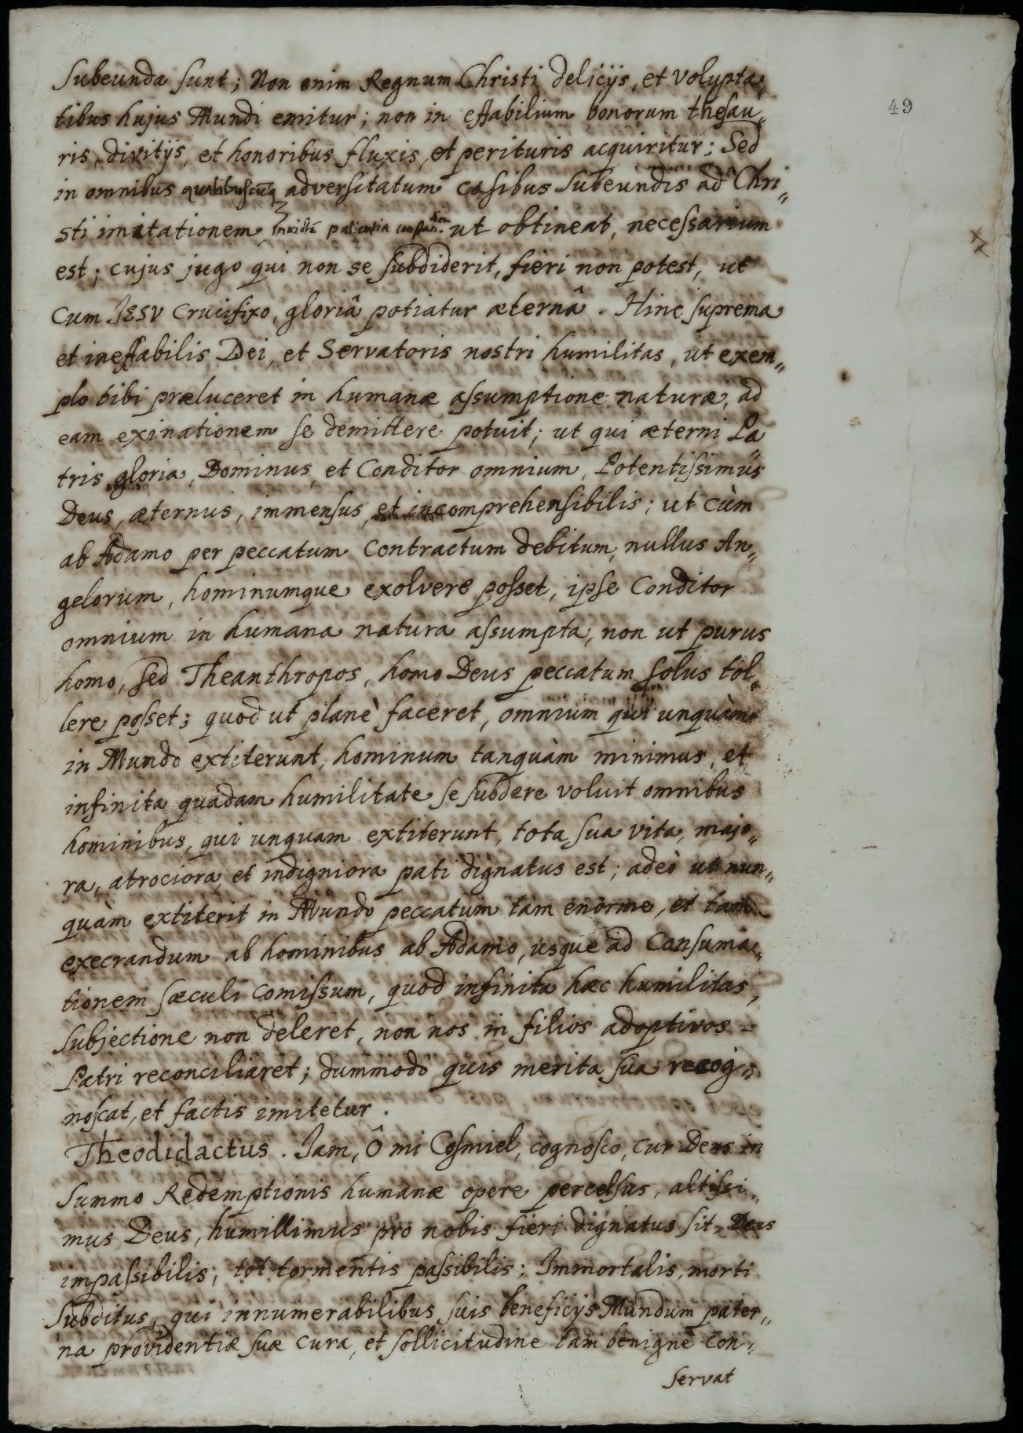 subeunda sunt; Non enim Regnum Christi delicijs, et volupta„
tibus hujus Mundi emitur; non in effabilium bonorum thesau„
ris, divitijs, et honoribus fluxis, et perituris acquiritur: Sed
in omnibus qualibuscunq adversitatum casibus subeundis ad Chri„
sti imitationem, invicta patientia ut obtineat, necessarium
est; cujus jugo qui non se subdiderit, fieri non potest, ut
cum JESV Crucifixo, gloriâ potiatur æternâ. Hinc suprema
et ineffabilis Dei, et Servatoris nostri humilitas, ut exem„
plo tibi præluceret in humanæ assumptione naturæ, ad
eam exinationem se demittere potuit; ut qui æterni Pa„
tris gloria, Dominus, et Conditor omnium, Potentissimus
Deus, æternus, immensus, et incomprehensibilis; ut cùm
ab Adamo per peccatum contractum debitum, nullus An„
gelorum, hominumque exolvere posset, ipse Conditor
omnium in humana natura assumpta, non ut purus
homo, sed Theanthropos, homo Deus peccatum solus tol„
lere posset; quod ut planè faceret, omnium qui unquàm
in Mundo extiterunt, hominum tanquàm minimus, et
infinita quadam humilitate se subdere voluit omnibus
hominibus, qui unquam extiterunt, tota sua vita, majo„
ra, atrociora, et indigniora pati dignatus est; adeò ut nun„
quàm extiterit in Mundo peccatum tam enorme, et tam
execrandum ab hominibus ab Adamo, usque ad Consuma„
tionem sæculi comissum, quod infinita hæc humilitas,
subjectione non deleret, non nos in filios adoptivos
Patri reconciliaret; dummodo quis merita sua recog„
noscat, et factis imitetur.
Theodidactus. Jam, Ô mi Cosmiel, cognosco, cur Deus in
summo Redemptionis humanæ opere percelsus, altissi„
mus Deus, humillimus pro nobis fieri dignatus sit, Deus
impassibilis, tot tormentis passibilis; Immortalis, morti
subditus, qui innumerabilibus suis beneficijs Mundum pater„
na providentiæ suæ cura, et sollicitudine tam benignè con„
servat
49